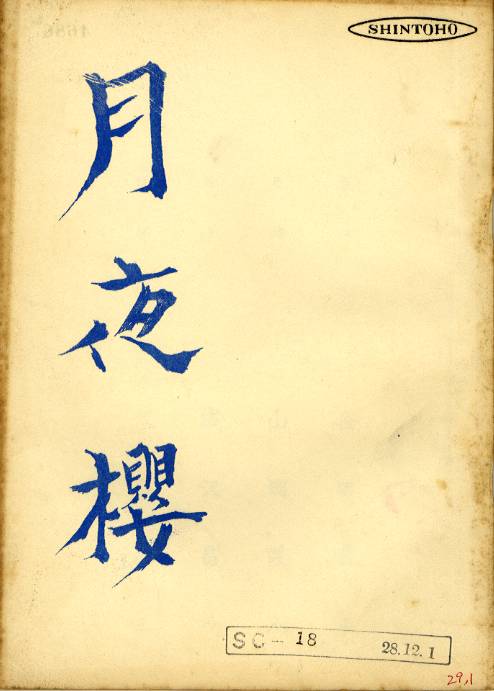 SHINTOHO
月夜櫻
SC-18 28.12.1
29.1